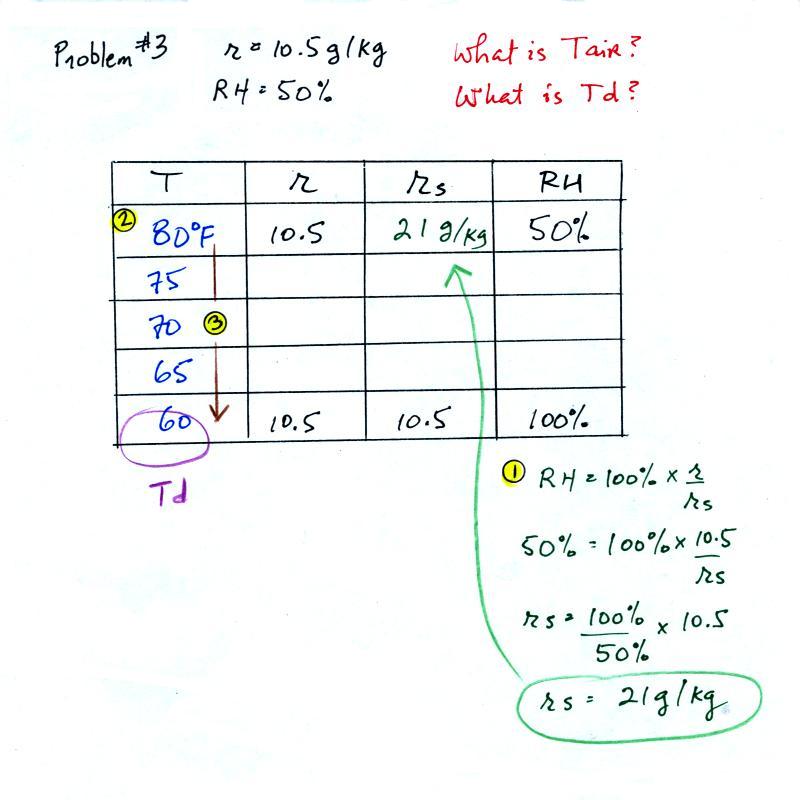 Problem #3 r = 10.5 g/kg What is Tair?
RH = 50% What is Td?
T r rs RH
② 80°F 10.5 21 g/kg 50%
75
70 ③
65
60 10.5 10.5 100%
Td
① RH = 100% × r/rs
50% = 100% × 10.5/rs
rs = 100%/50% × 10.5
rs = 21g/kg